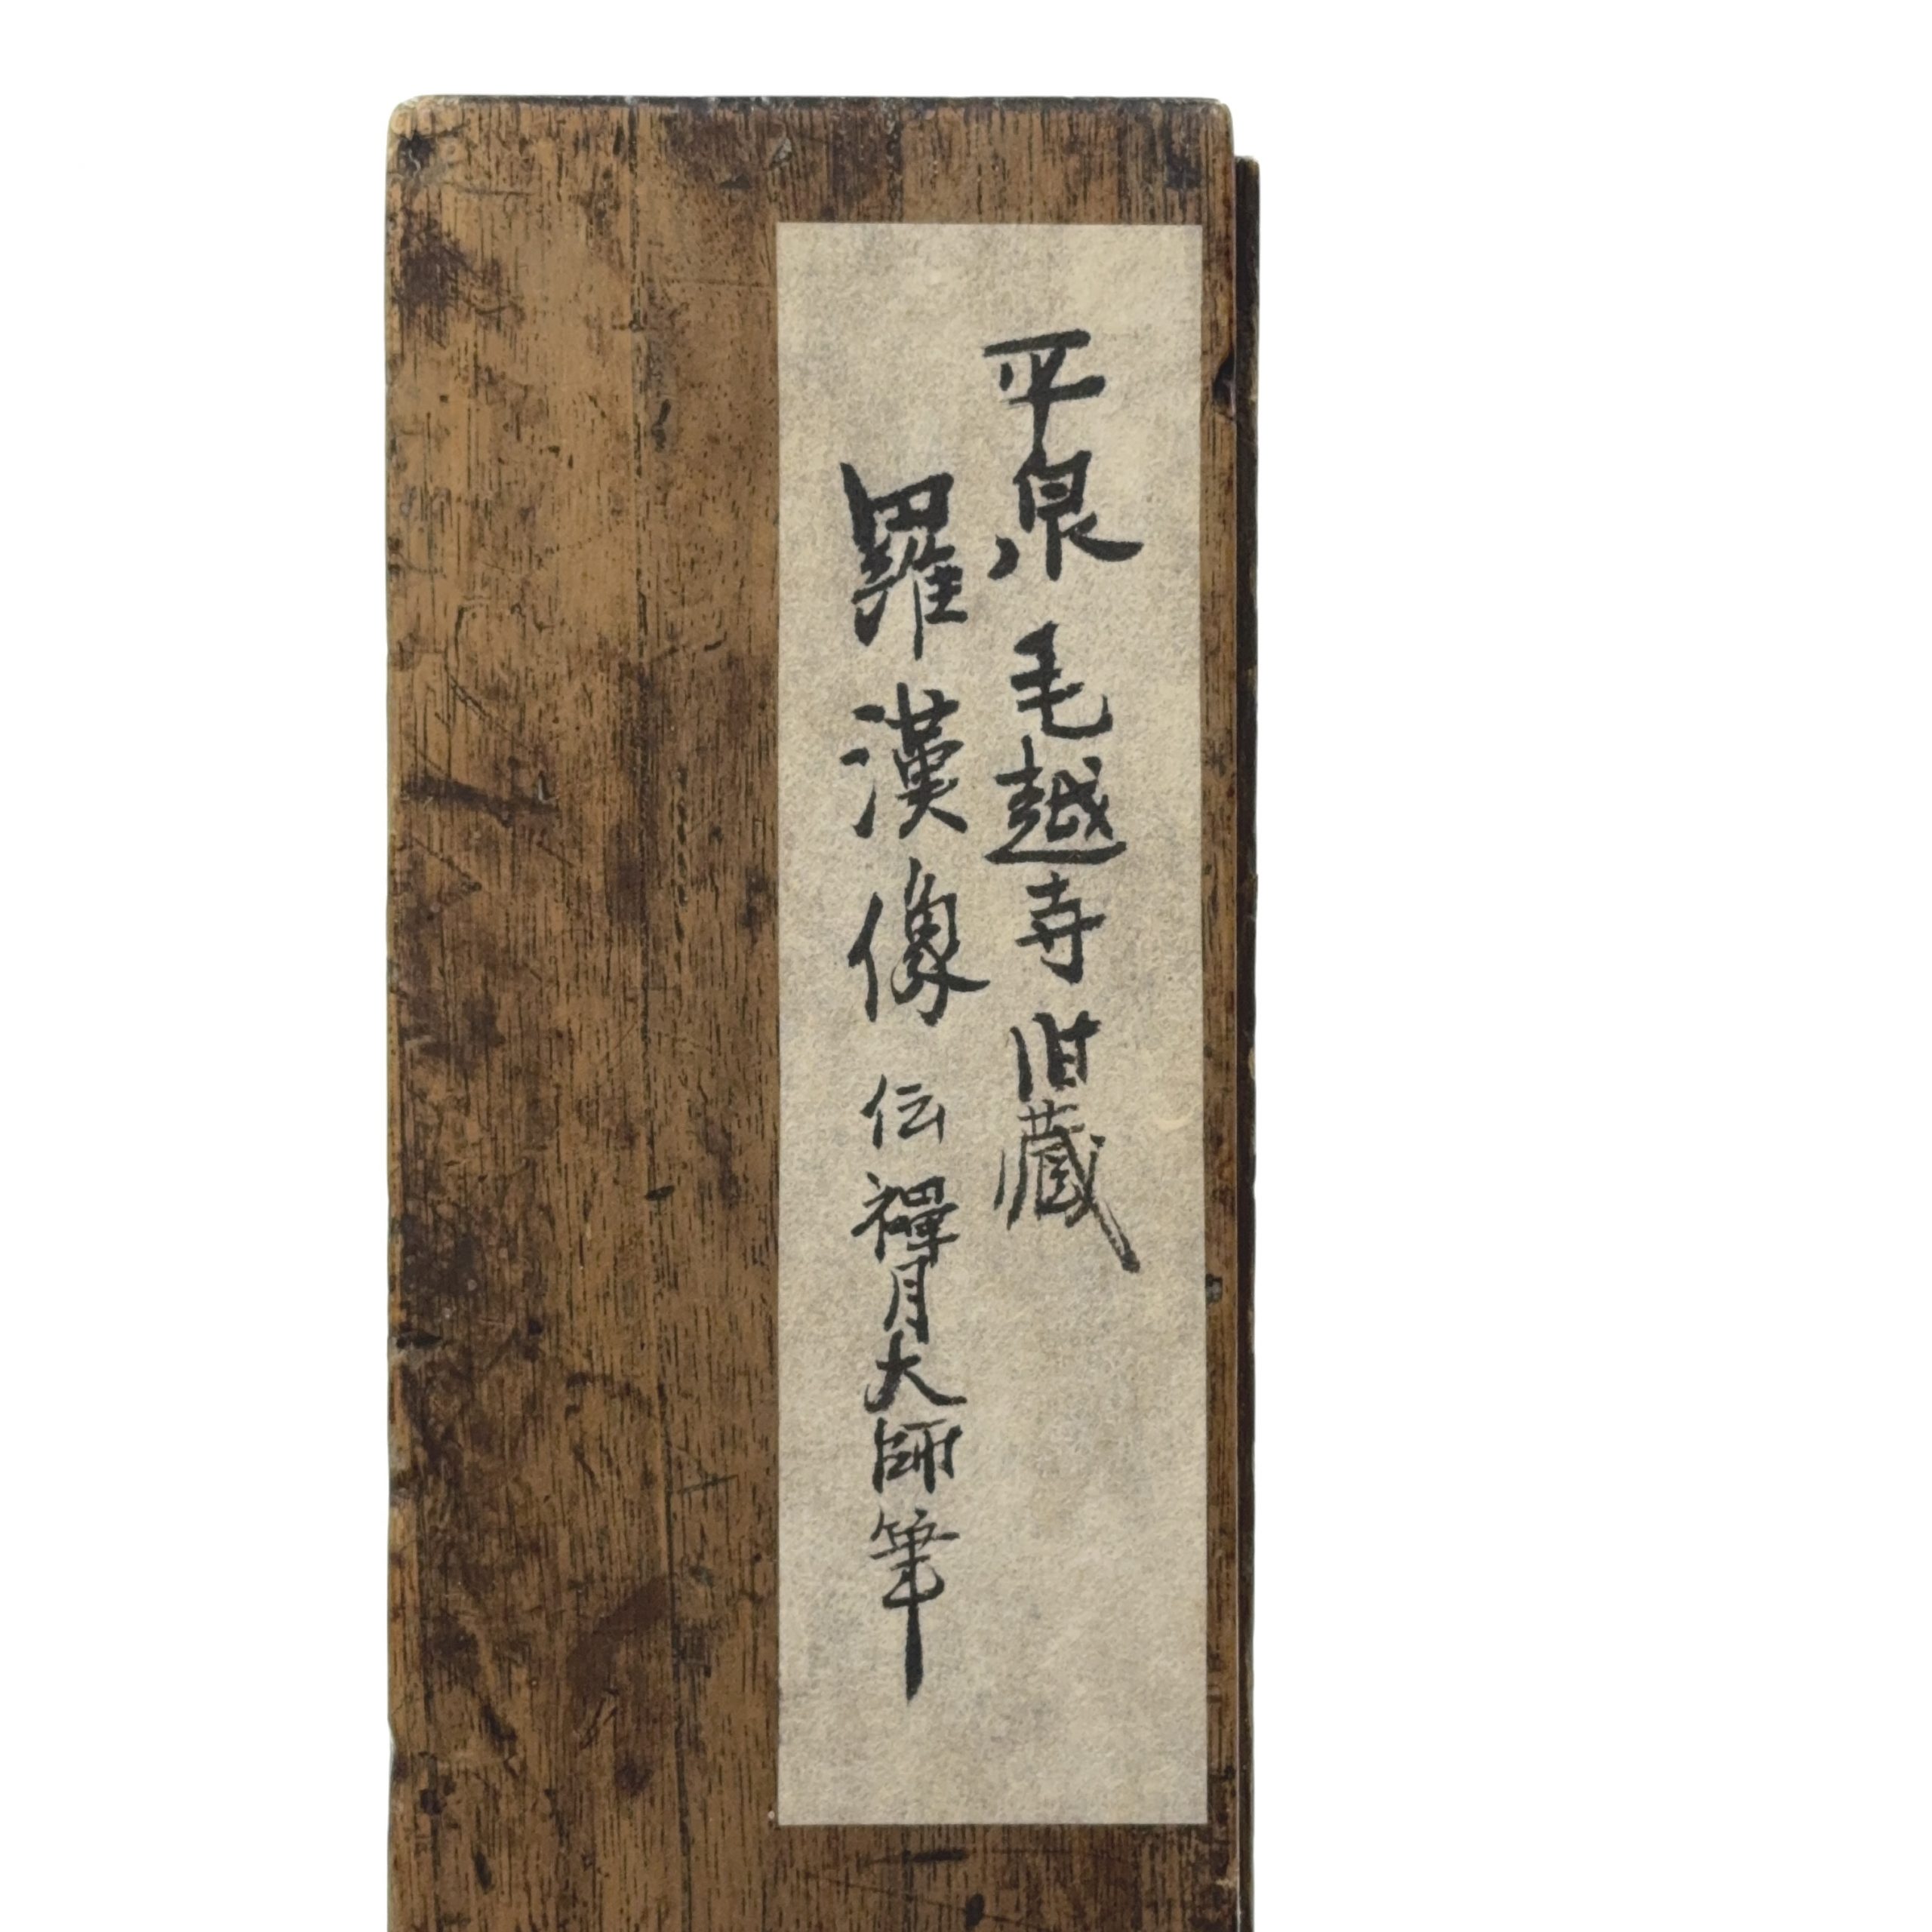 平泉毛越寺旧蔵
羅漢像 伝禅月大師筆